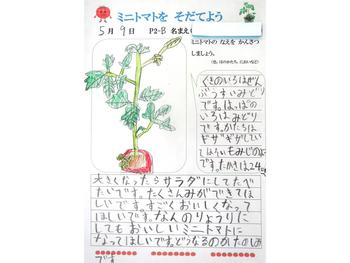 ミニトマトを そだてよう
5月9日 P2-B 名まえ
ミニトマトの なえを かんさつ
しましょう。
くきのいろはぜん
ぶうすいみどり
です。はっぱの
いろはみどり
です。かたちは
ギザギザがしてい
もみじの
です。たかさは24
大きくなったらサラダにしてたべ
たいです。たくさんみができてほ
しいです。すごくおいしくなって
ほしいです。なんのりょうりに
してもおいしいミニトマトに
なってほしいです。どうなるのかたのしみ
です